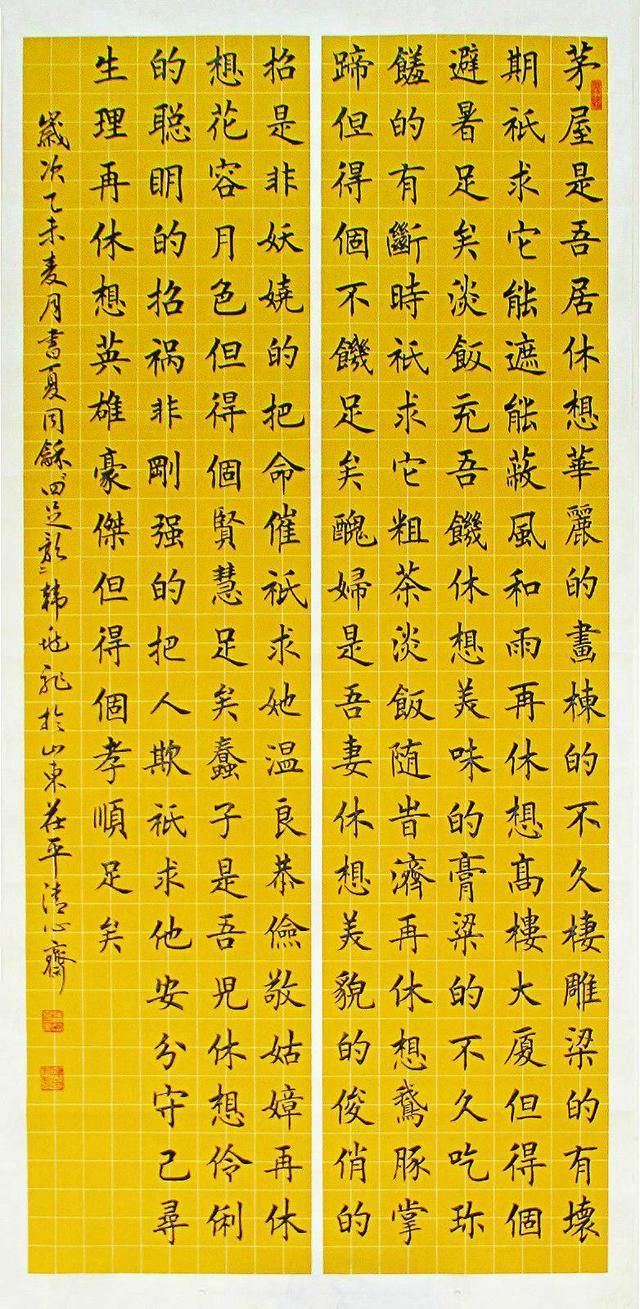 茅屋是吾居休想華麗的畫棟的不久棲雕梁的有壞
期祇求它能遮能蔽風和雨再休想高樓大廈但得個
避暑足矣淡飯充吾饑休想美味的膏粱的不久吃珎
饈的有斷時祇求它粗茶淡飯隨旹濟再休想鵞豚掌
蹄但得個不饑足矣醜婦是吾妻休想美貌的俊俏的
招是非妖嬈的把命催祇求她温良恭儉敬姑嫜再休
想花容月色但得個賢慧足矣蠢子是吾児休想伶俐
的聪眀的招禍非剛强的把人欺祇求他安分守己尋
生理再休想英雄豪傑但得個孝順足矣
歲次乙未麦月書夏同龢四足歌韩於山東茌平清心齋